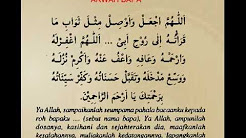 ARWAH BAPA
اَللّٰهُمَّ اجْعَلْ وَأَوْصِلْ مِثْلَ ثَوَابِ مَا
قَرَأْتُهُ إِلَى رُوْحِ أَبِيْ ... اَللّٰهُمَّ اغْفِرْلَهُ
وَارْحَمْهُ وَعَافِهِ وَاعْفُ عَنْهُ وَأَكْرِمْ نُزُلَهُ
وَوَسِّعْ مَدْخَلَهُ وَتَقَبَّلْ حَسَنَاتِهُ وَكَفِّرْ سَيِّئَاتِهُ
بِرَحْمَتِكَ يَا أَرْحَمَ الرَّاحِمِيْنَ
Ya Allah, sampaikanlah seumpama pahala bacaanku kepada
roh bapaku ... (sebut nama bapa), Ya Allah, ampunilah
dosanya, kasihani dan sejahterakan dia, maafkanlah
kesalahannya, muliakanlah kedatangannya, lapangkanlah